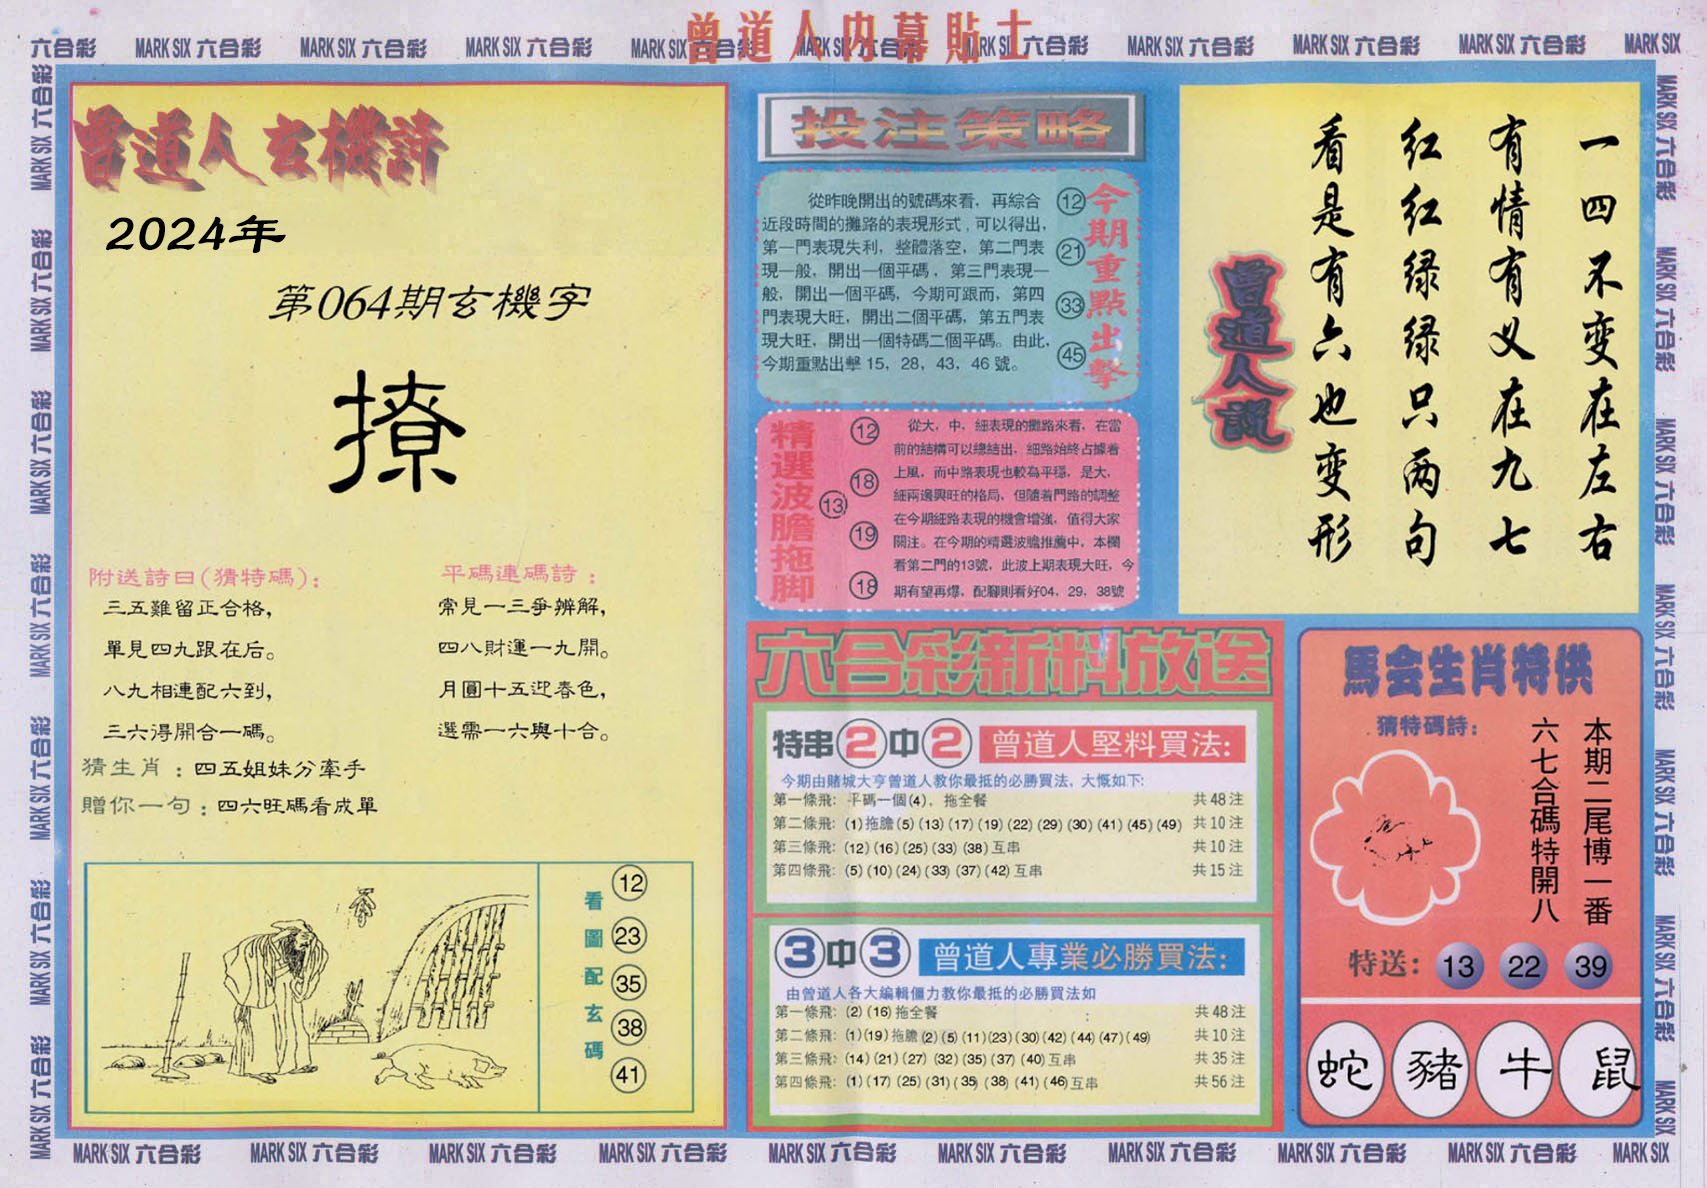 曾道人内幕貼士
六合彩 MARK SIX 六合彩 MARK SIX 六合彩 MARK SIX 六合彩 MARK SIX 六合彩 MARK SIX 六合彩 MARK SIX 六合彩 MARK SIX 六合彩 MARK SIX 六合彩 MARK SIX
曾道人玄機詩
2024年
第064期玄機字
撩
附送詩曰(猜特碼):
三五難留正合格,
單見四九跟在后。
八九相連配六到,
三六得開合一碼。
平碼連碼詩:
常見一三爭辨解,
四八財運一九開。
月圓十五迎春色,
選需一六與十合。
猜生肖:四五姐妹分牽手
贈你一句:四六旺碼看成單
看圖配玄碼
12
23
35
38
41
投注策略
從昨晚開出的號碼來看,再綜合
近段時間的攤路的表現形式,可以得出,
第一門表現失利,整體落空,第二門表
現一般,開出一個平碼,第三門表現一
般,開出一個平碼,今期可跟而,第四
門表現大旺,開出二個平碼,第五門表
現大旺,開出一個特碼二個平碼。由此,
今期重點出擊15,28,43,46號。
12
21
33
45
今期重點出擊
精選波膽拖脚
12
18
13
19
18
從大,中,細表現的攤路來看,在當
前的結構可以總結出,細路始終占據着
上風,而中路表現也較為平穩,是大,
細兩邊興旺的格局,但隨着門路的調整
在今期細路表現的機會增強,值得大家
關注。在今期的精選波膽推薦中,本欄
看第二門的13號,此波上期表現大旺,今
期有望再爆,配腳則看好04,29,38號
六合彩新料放送
特串2中2 曾道人堅料買法:
今期由賭城大亨曾道人教你最抵的必勝買法,大慨如下:
第一條飛:平碼一個(4),拖全餐 共48注
第二條飛:(1)拖膽(5)(13)(17)(19)(22)(29)(30)(41)(45)(49) 共10注
第三條飛:(12)(16)(25)(33)(38)互串 共10注
第四條飛:(5)(10)(24)(33)(37)(42)互串 共15注
3中3 曾道人專業必勝買法:
由曾道人各大編輯僵力教你最抵的必勝買法如
第一條飛:(2)(16)拖全餐 共48注
第二條飛:(1)(19)拖膽(2)(5)(11)(23)(30)(42)(44)(47)(49) 共10注
第三條飛:(14)(21)(27)(32)(35)(37)(40)互串 共35注
第四條飛:(1)(17)(25)(31)(35)(38)(41)(46)互串 共56注
一四不变在左右
有情有义在九七
红红绿绿只两句
看是有六也变形
曾道人説
馬会生肖特供
猜特碼詩:
本期二尾博一番
六七合碼特開八
特送: 13 22 39
蛇 豬 牛 鼠
MARK SIX 六合彩 MARK SIX 六合彩 MARK SIX 六合彩 MARK SIX 六合彩 MARK SIX 六合彩 MARK SIX 六合彩 MARK SIX 六合彩 MARK SIX 六合彩 MARK SIX 六合彩 MARK SIX